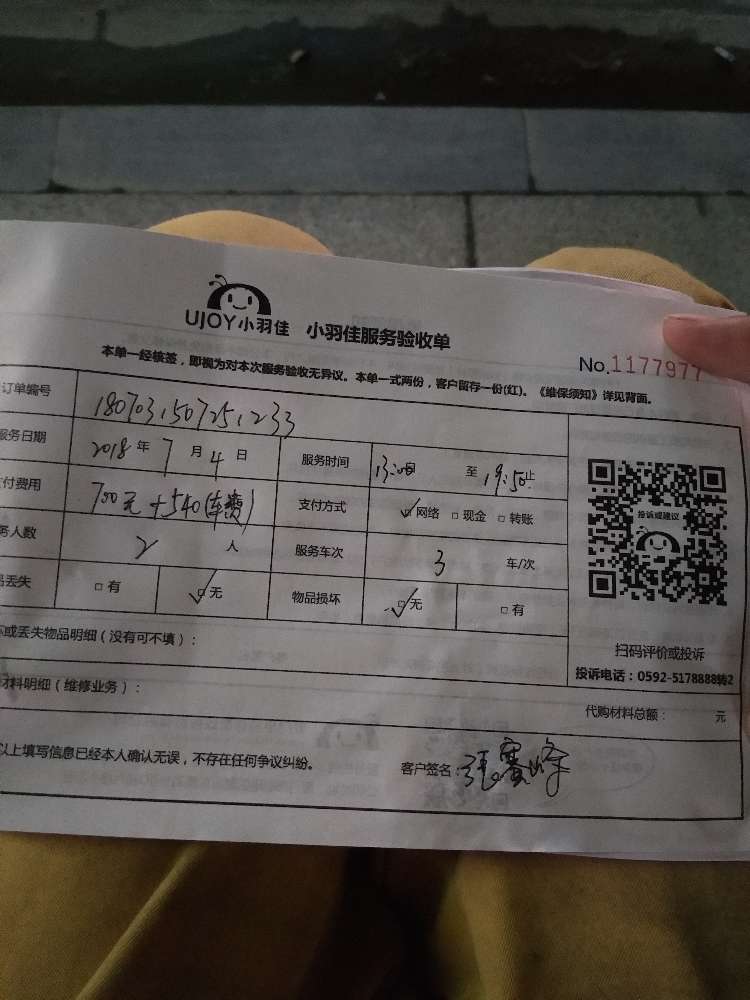 UJOY小羽佳 小羽佳服务验收单
No.1177977
本单一经核签，即视为对本次服务验收无异议。本单一式两份，客户留存一份(红)。《维保须知》详见背面。
订单编号 1807031507251233
服务日期 2018年7月4日 服务时间 至19:50止
付费用 700元+540(车费) 支付方式 ☑网络 □现金 □转账
务人数 2人 服务车次 3 车/次
品丢失 □有 ☑无 物品损坏 ☑无 □有
投诉或建议
扫码评价或投诉
投诉电话：0592-5178888转2
坏或丢失物品明细（没有可不填）：
材料明细（维修业务）：
代购材料总额： 元
以上填写信息已经本人确认无误，不存在任何争议纠纷。 客户签名：张赛峰